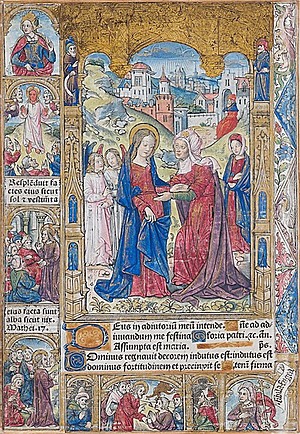 Resplēduit fa
cies eius sicut
sol ⁊ vestimēta
eius facta sunt
alba sicut nix
Mathei. 17.
Deus in adiutoriū meū intende.
Gloria patri. ⁊c. añ.
Assumpta est maria. ps.
Dominus regnavit decorem indutus est: indutus est
dominus fortitudinem et precinxit se